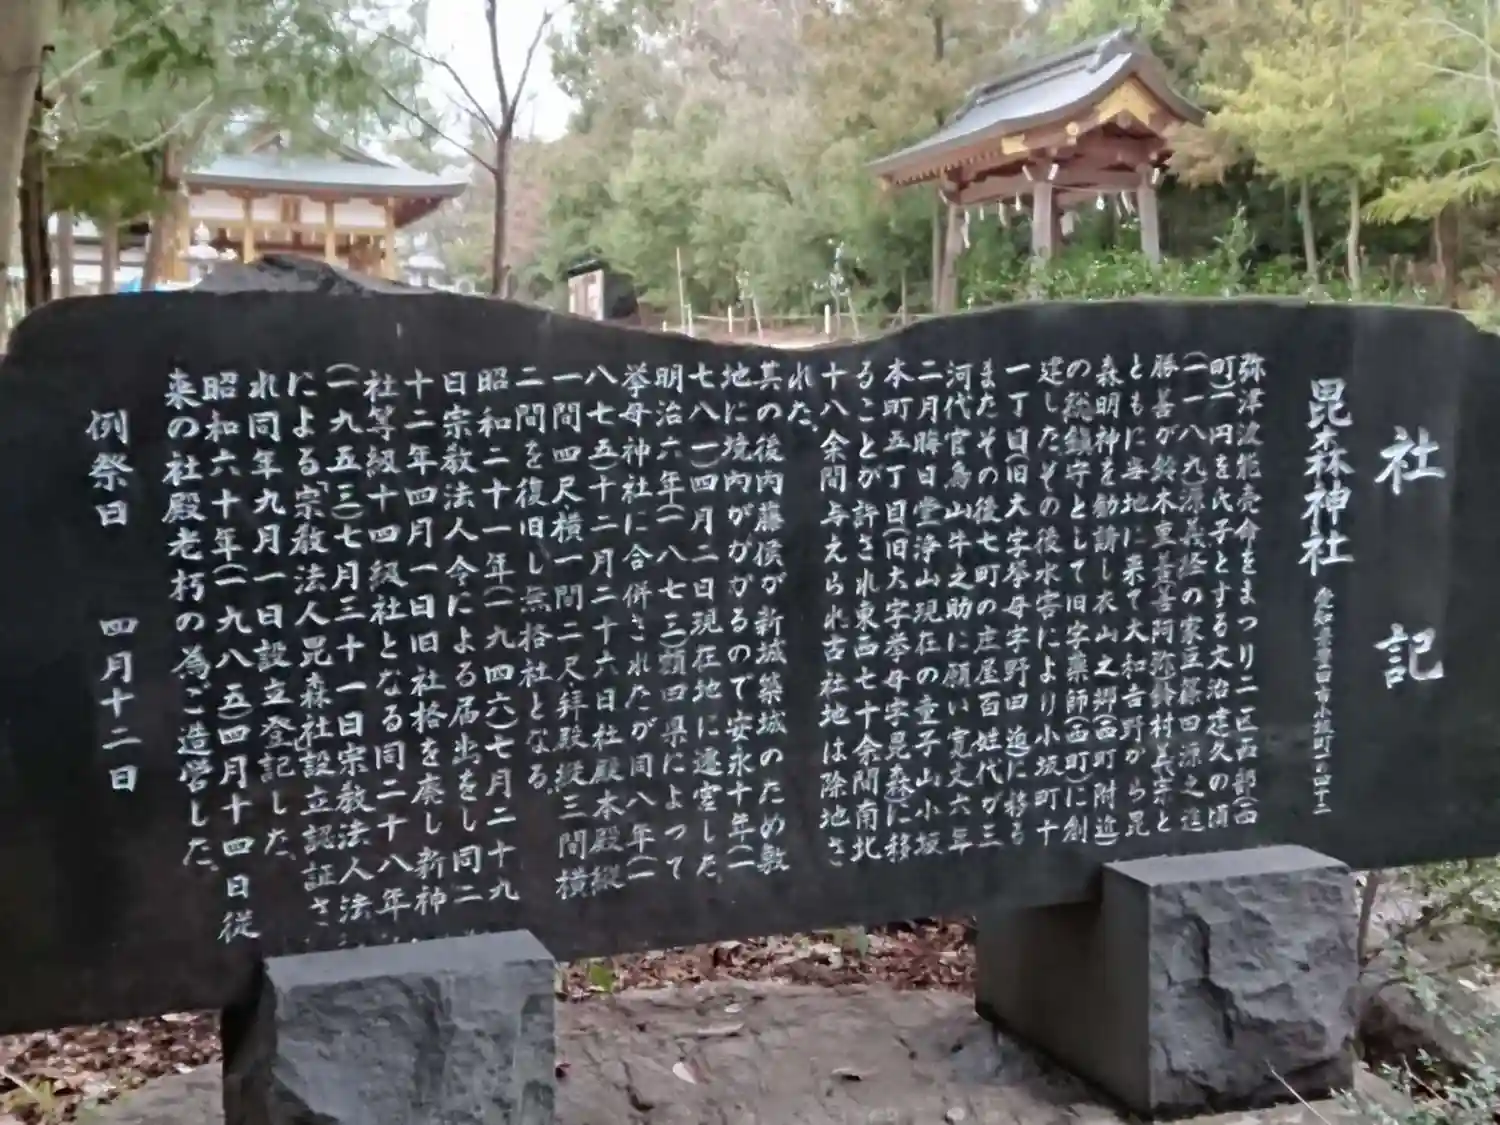 社記
昆森神社 愛知県豊田市小坂町
弥津波能売命をまつり二区西部(西
町)一円を氏子とする文治建久の頃
(一一八九)源義経の家臣藤田源之進
勝善が鈴木重善善阿弥鈴村義宗と
ともに当地に来て大和吉野から昆
森明神を勧請し衣山之郷(西町附近)
の総鎮守として旧字薬師(西町)に創
建したその後水害により小坂町十
一丁目(旧大字挙母字野田迫)に移る
またその後七町の庄屋百姓代が三
河代官鳥山牛之助に願い寛文六年
二月晦日堂浄山現在の童子山小坂
本町五丁目(旧大字挙母字昆森)に移
ることが許され東西七十余間南北
十八余間与えられ古社地は除地さ
れた。
其の後内藤侯が新城築城のため敷
地に境内がかかるので安永十年(一
七八一)四月二日現在地に遷宮した。
明治六年(一八七三)額田県によって
挙母神社に合併されたが同八年(一
八七五)十二月二十六日社殿本殿縦
一間四尺横一間二尺拝殿縦三間横
二間を復旧し無格社となる。
昭和二十一年(一九四六)七月二十九
日宗教法人令による届出をし同二
十二年四月一日旧社格を廃し新神
社等級十四級社となる同二十八年
(一九五三)七月三十一日宗教法人法
による「宗教法人昆森社」設立認証さ
れ同年九月一日設立登記した。
昭和六十年(一九八五)四月十四日従
来の社殿老朽の為ご造営した。
例祭日 四月十二日